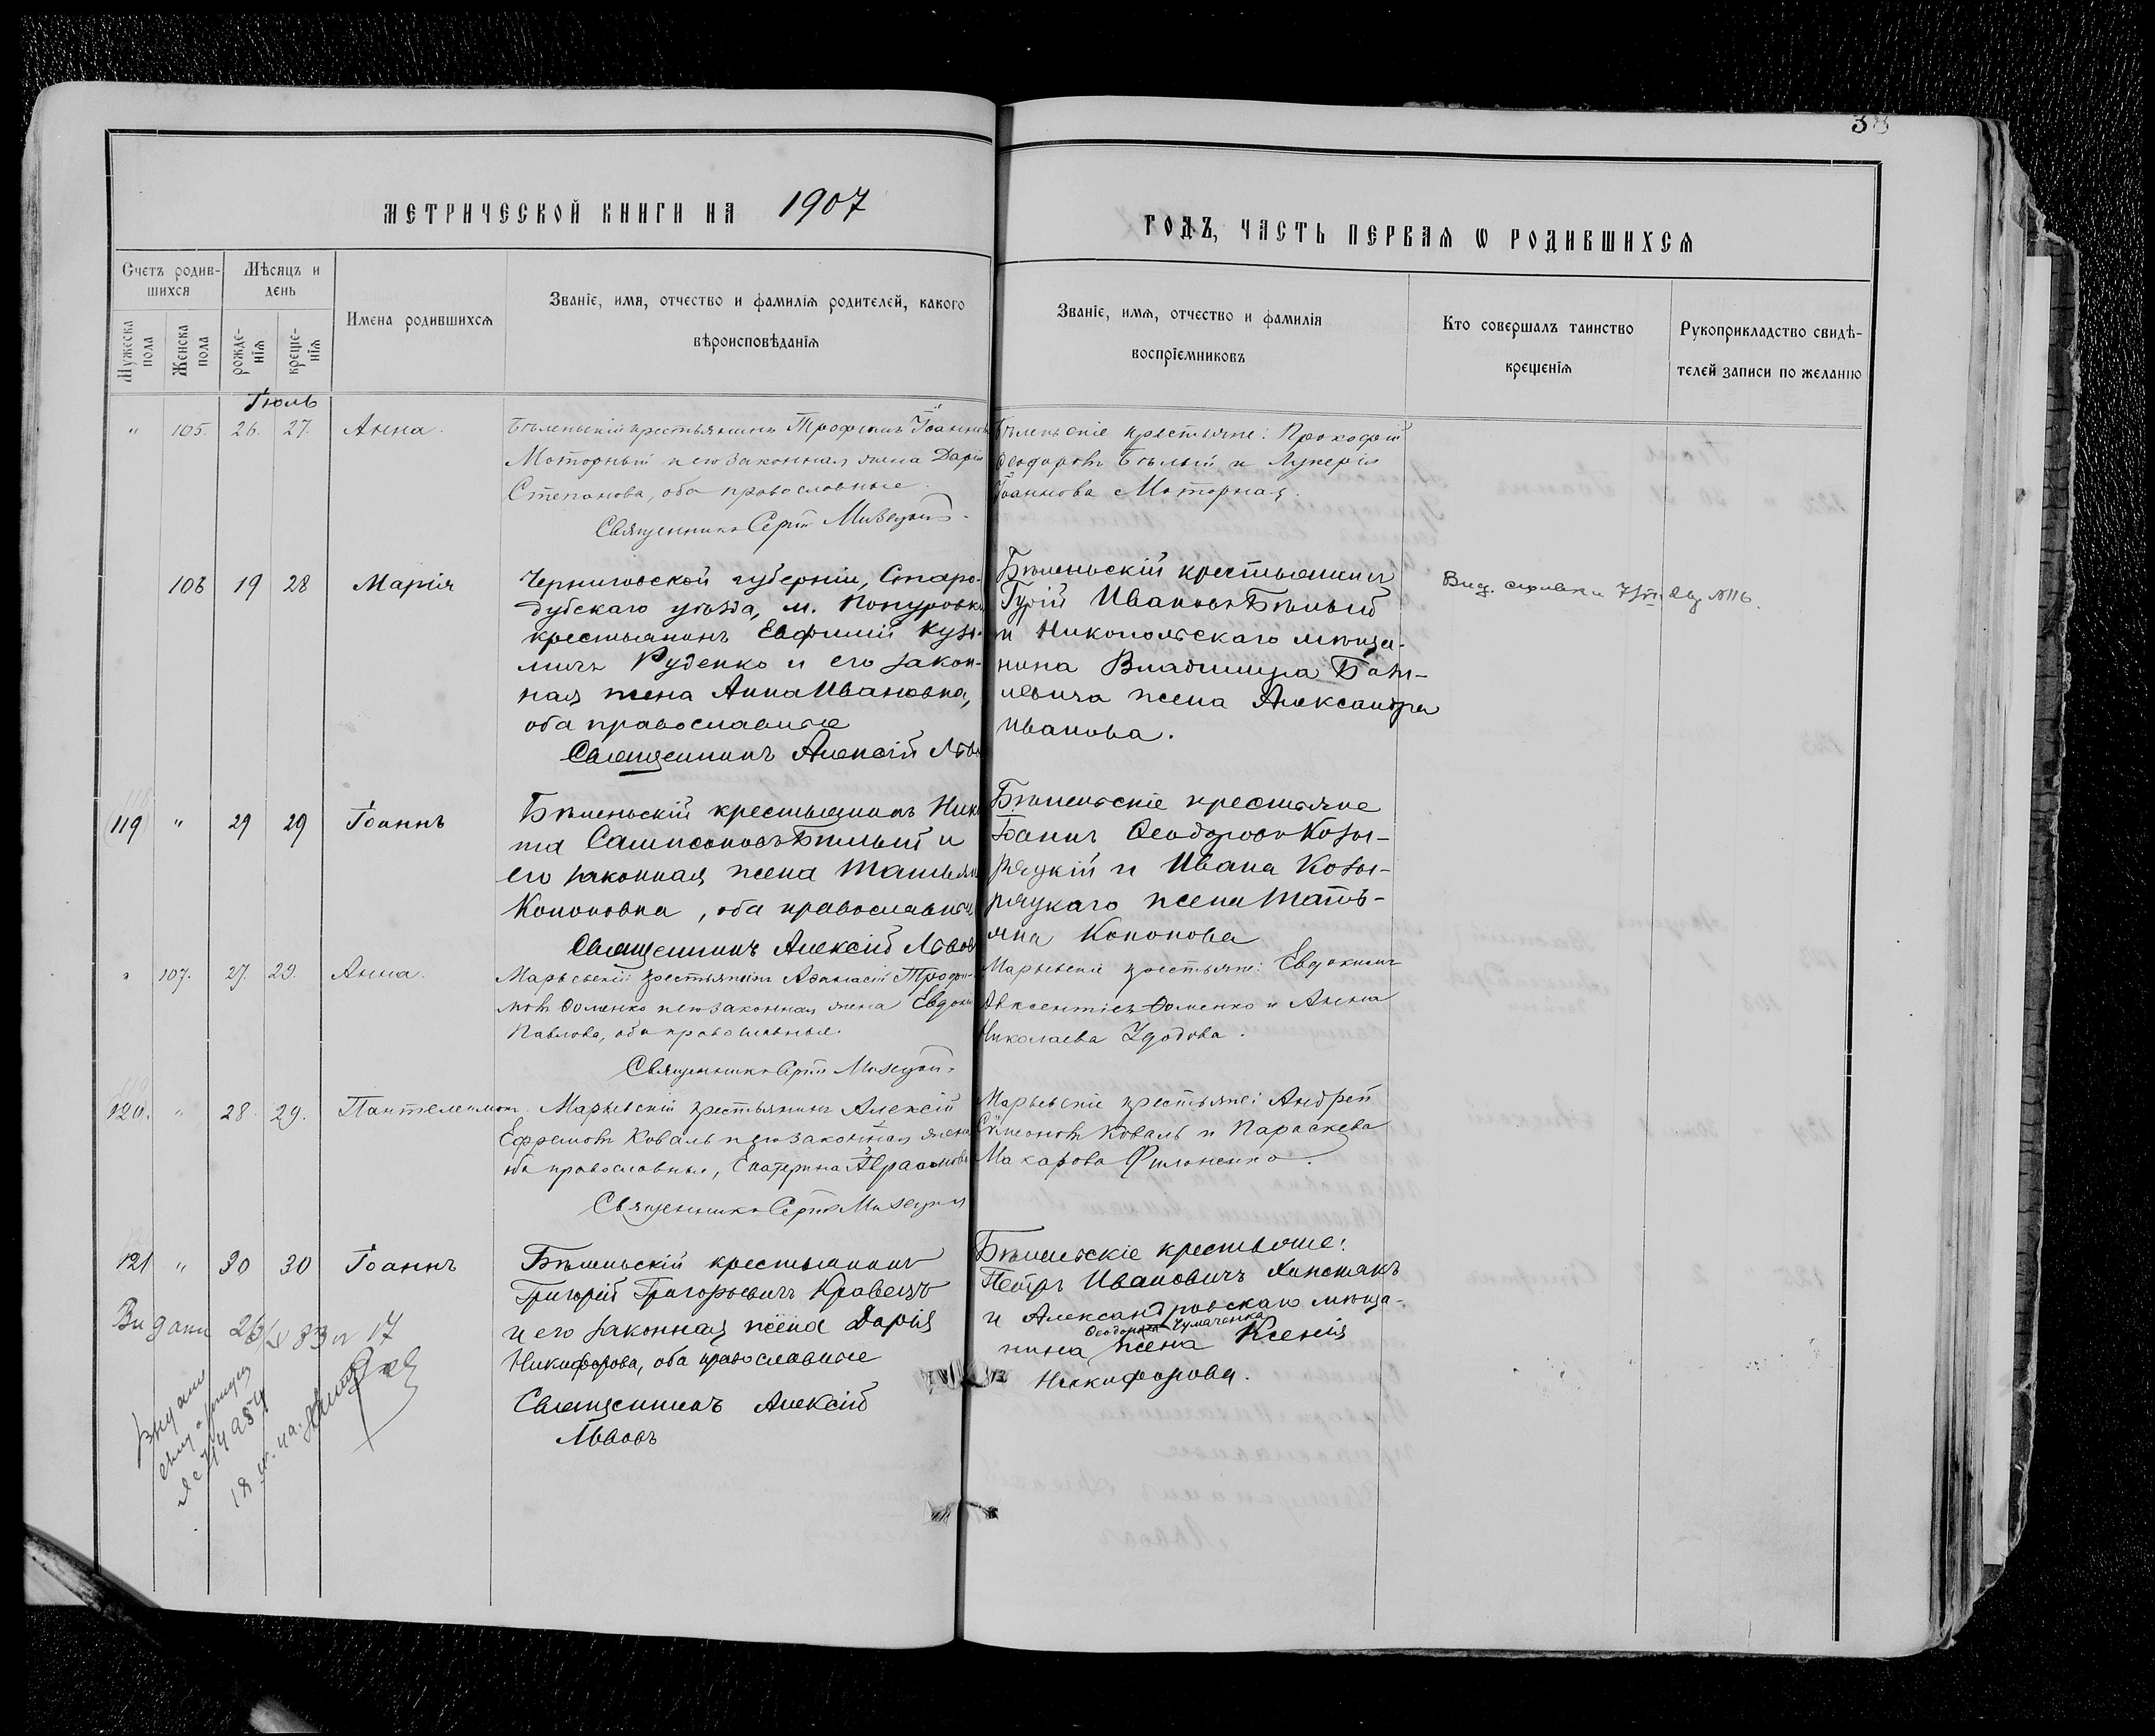 38
МЕТРИЧЕСКОЙ КНИГИ НА 1907
ГОДЪ, ЧАСТЬ ПЕРВАЯ Ѡ РОДИВШИХСЯ
Счетъ родив-
шихся
Мѣсяцъ и
день
Имена родившихся
Званіе, имя, отчество и фамилія родителей, какого
вѣроисповѣданія
Званіе, имя, отчество и фамилія
воспріемниковъ
Кто совершалъ таинство
крещенія
Рукоприкладство свидѣ-
телей записи по желанію
Мужеска
пола
Женска
пола
рожде-
нія
креще-
нія
Іюль
" 105. 26. 27. Анна.
Бѣленьскій крестьянинъ Трофимъ Іоанновъ
Моторный и его законная жена Дарія
Степанова, оба православные.
Священникъ Сергій
Бѣленьскіе крестьяне: Прокофій
Ѳеодоровъ Бѣлый и Лукерія
Іоаннова Моторная.
106 19 28 Марія
Черниговской губерніи, Старо-
дубскаго уѣзда, м. Понуровки
крестьянинъ Евфимій Кузь-
мичъ Руденко и его закон-
ная жена Анна Ивановна,
оба православные
Священникъ Алексій Львовъ
Бѣленьскій крестьянинъ
Гурій Ивановъ Бѣлый
и Никопольскаго мѣща-
нина Владимира
жена Александра
Иванова.
119 " 29 29 Іоаннъ
Бѣленьскій крестьянинъ Ники-
та Сампсоновъ Бѣлый и
его законная жена Татьяна
Кононовна, оба православные
Священникъ Алексій Львовъ
Бѣленьскіе крестьяне
Іоаннъ Ѳеодоровъ Козы-
ряцкій и Ивана Козы-
ряцкаго жена Тать-
яна Кононова
" 107. 27. 29. Анна.
Марьевскій крестьянинъ Аѳанасій Трофи-
мовъ Ѳоменко и его законная жена Евдокія
Павлова, оба православные.
Священникъ Сергій
Марьевскіе крестьяне: Евдокимъ
Авксентіевъ Ѳоменко и Анна
Николаева Удодова.
120. " 28. 29. Пантелеимонъ.
Марьевскій крестьянинъ Алексій
Ефремовъ Коваль и его законная жена
оба православные, Екатерина Авраамова
Священникъ Сергій
Марьевскіе крестьяне: Андрей
Симеоновъ Коваль и Параскева
Макарова Филоненко.
121 " 30 30 Іоаннъ
Бѣленьскій крестьянинъ
Григорій Григорьевичъ Кравецъ
и его законная жена Дарія
Никифорова, оба православные
Священникъ Алексій
Львовъ
Бѣленьскіе крестьяне:
Петръ Ивановичъ Хижнякъ
и Александровскаго мѣща-
Чумаченка
нина жена Ксенія
Никифорова.